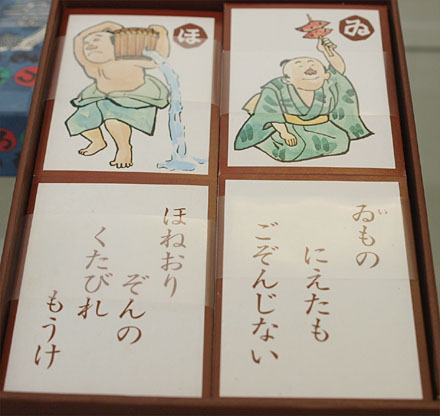 ゐ
ほ
ゐもの
い
にえたも
ごぞんじない
ほねおり
ぞんの
くたびれ
もうけ